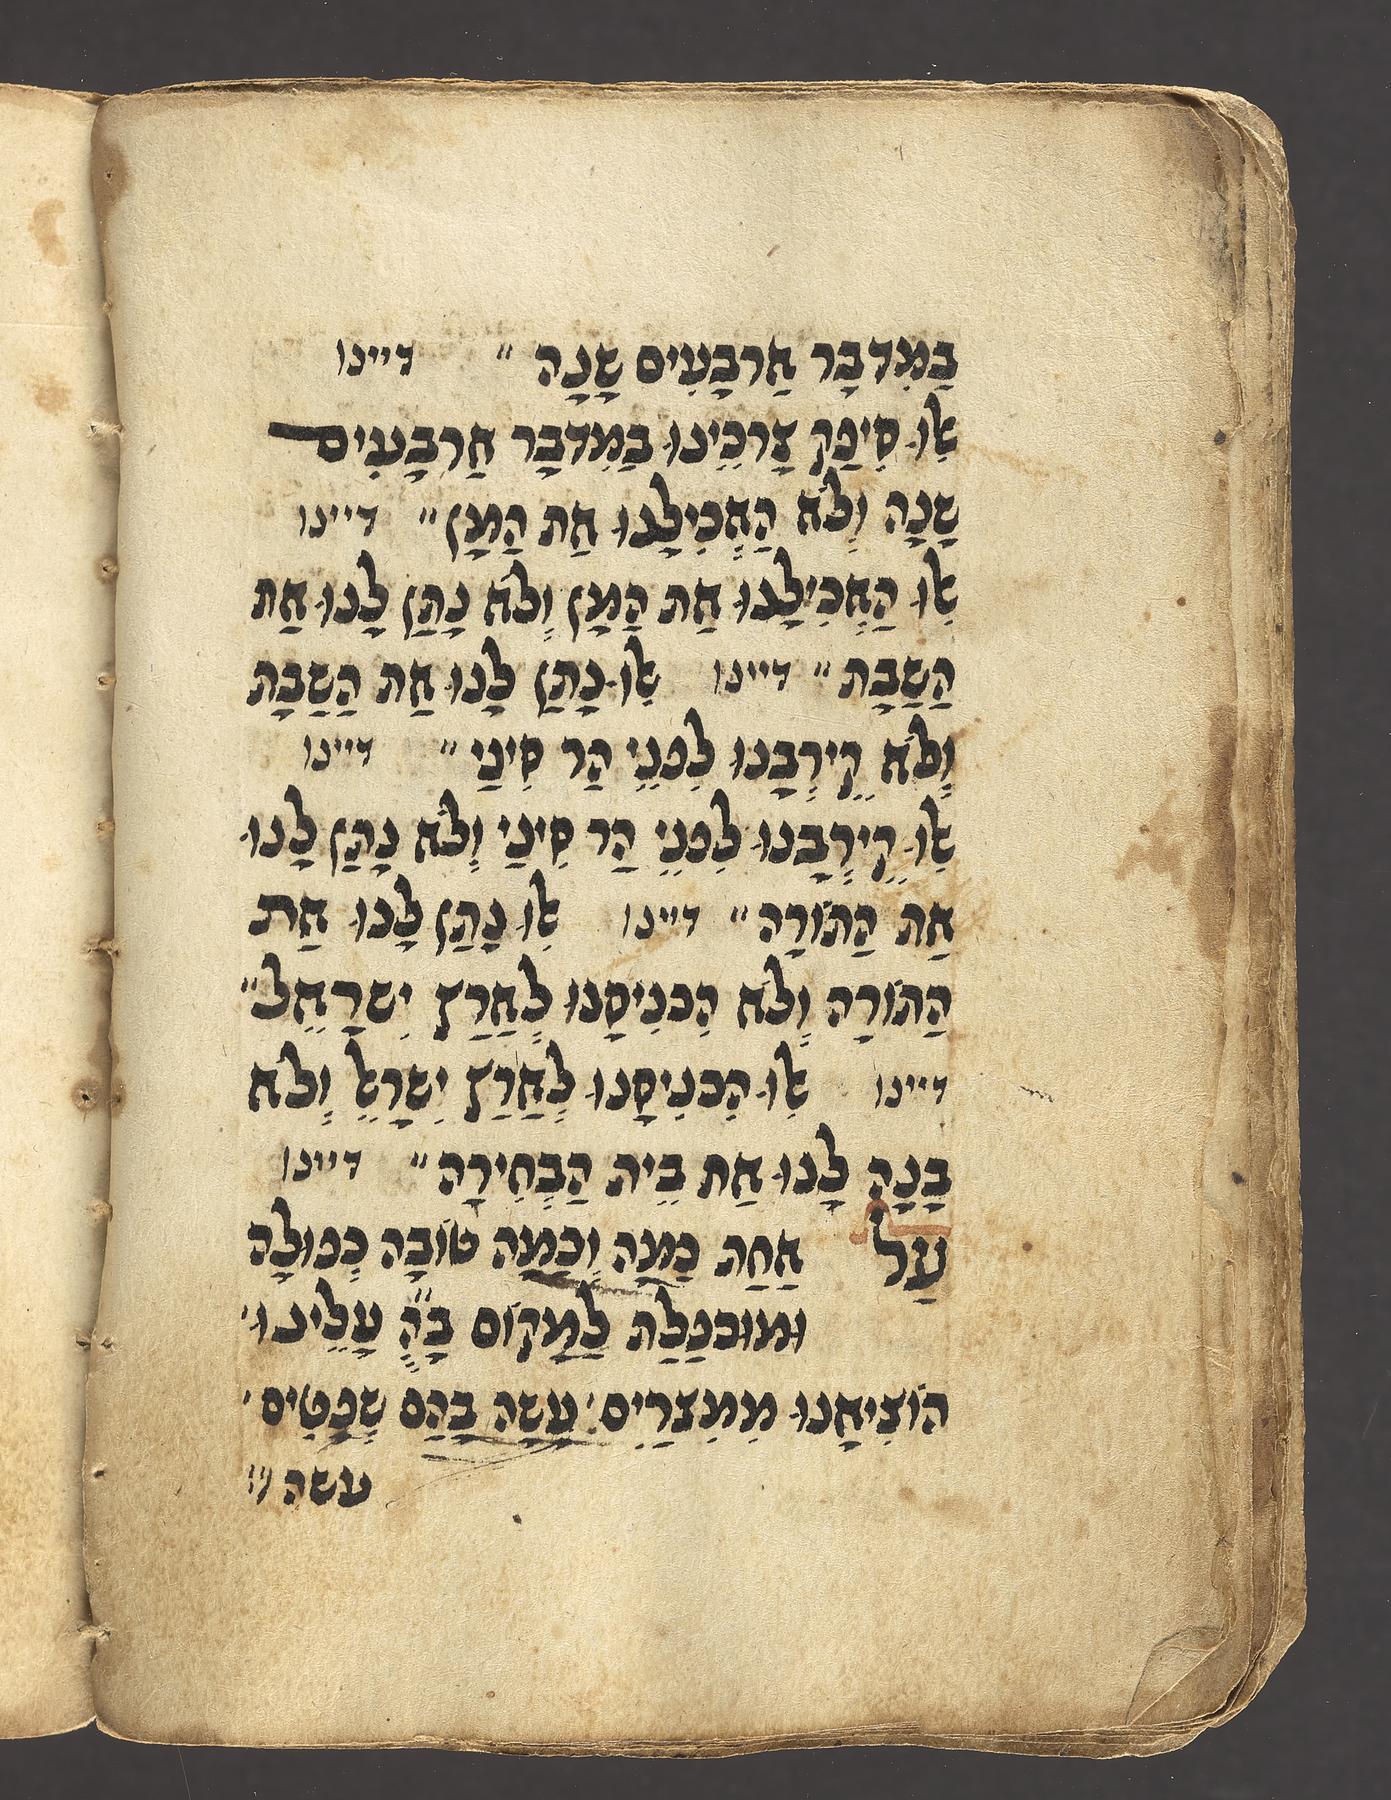 בַמִדבָר אַרבָעִים שָנָה ״ דיינו
אִלו סִיפַק צָרכֵינו בַמִדבָר אַרבָעִים
שָנָה וְלֹא הַאְכִילָנו אַת הַמָן ״ דיינו
אִלו הַאְכִילָנו אַת הַמָן וְלֹא נָתַן לָנו אַת
הַשַבָת ״ דיינו אִלו נָתַן לָנו אַת הַשַבָת
וְלֹא קֵירְבָנו לִפנֵי הַר סִינַי ״ דיינו
אִלו קֵירְבָנו לִפנֵי הַר סִינַי וְלֹא נָתַן לָנו
אַת הַתוֹרָה ״ דיינו אִלו נָתַן לָנו אַת
הַתוֹרָה וְלֹא הִכנִיסָנו לְאַרַץ יִשרָאֵל ״
דיינו אִלו הִכנִיסָנו לְאַרַץ יִשרָאֵל וְלֹא
בָנָה לָנו אַת בֵית הַבְחִירָה ״ דיינו
עַל אַחַת כַמָה וְכַמָה טוֹבָה כְפולָה
ומוכפַלַת לַמָקוֹם בָ״הֶ עָלֵינו׳
הוֹצִיאָנו מִמִצרַיִם׳ עָשָה בָהַם שְפָטִים׳
עשה